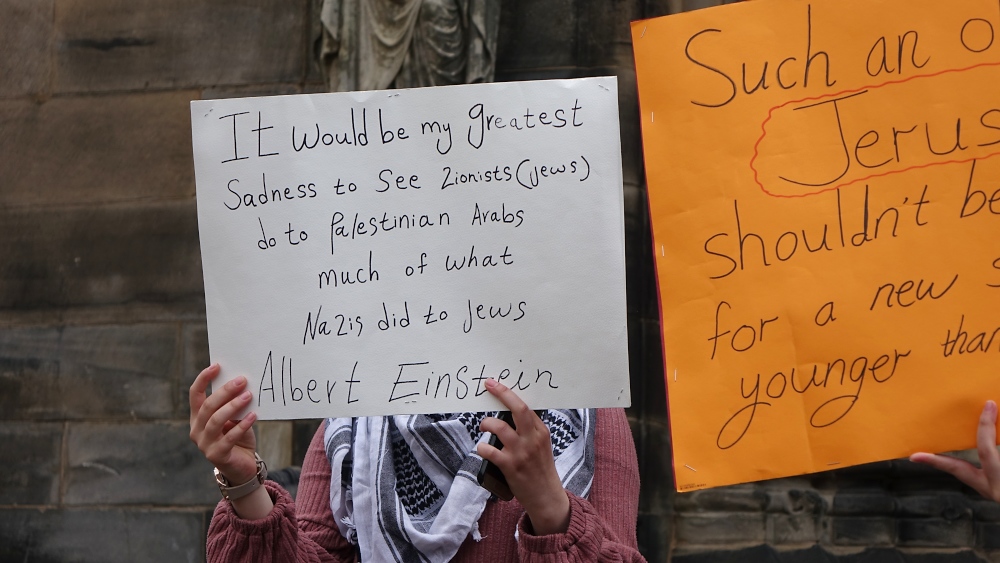 It would be my greatest
Sadness to See Zionists (jews)
do to Palestinian Arabs
much of what
Nazis did to Jews
Albert Einstein
Such an
Jerus
shouldn't be
for a new
younger than